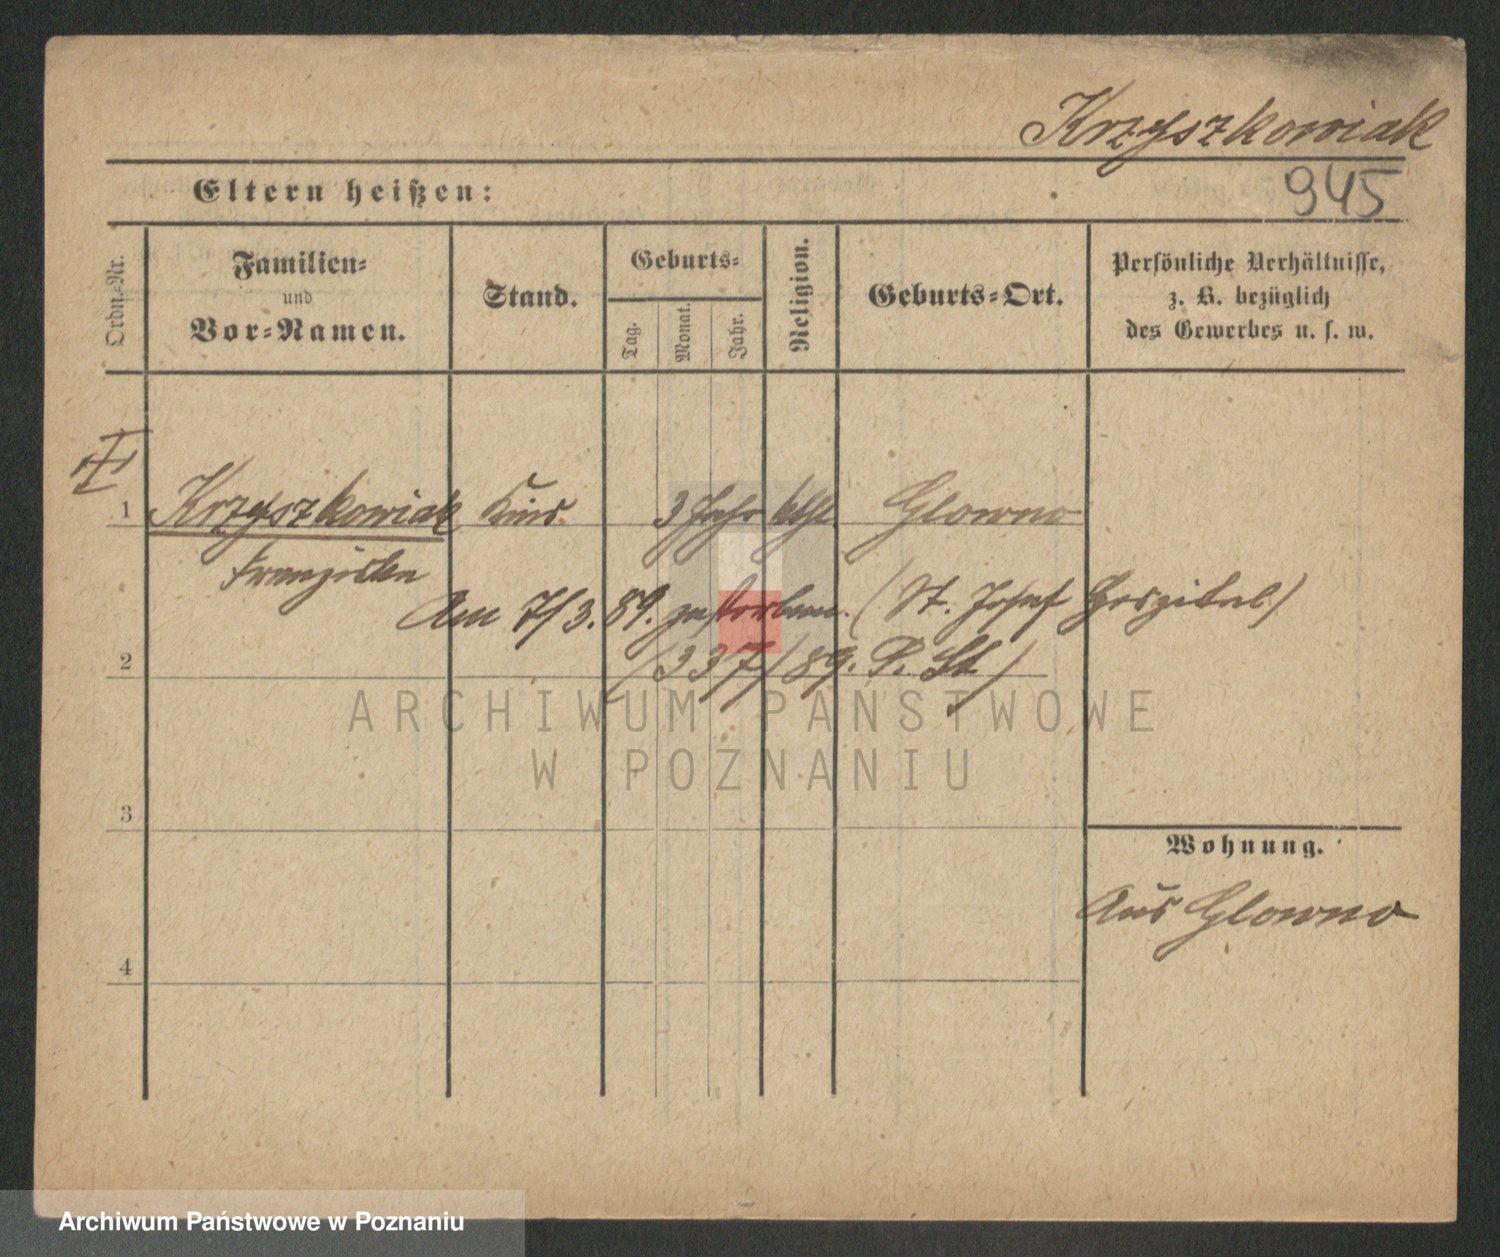 Krzyszkowiak
945
Eltern heißen:
Ordn.-Nr.
Familien-
und
Vor-Namen.
Stand.
Geburts-
Tag.
Monat.
Jahr.
Religion.
Geburts-Ort.
Persönliche Verhältnisse,
z. B. bezüglich
des Gewerbes u. s. w.
1 Krzyszkowiak Kind 3 Jahr kth. Glowno
Am 7/3. 89. gestorben. (St. Josef Hospital)
2 (337/89. P. St.)
ARCHIWUM PAŃSTWOWE
W POZNANIU
3
Wohnung.
Aus Glowno
4
Archiwum Państwowe w Poznaniu